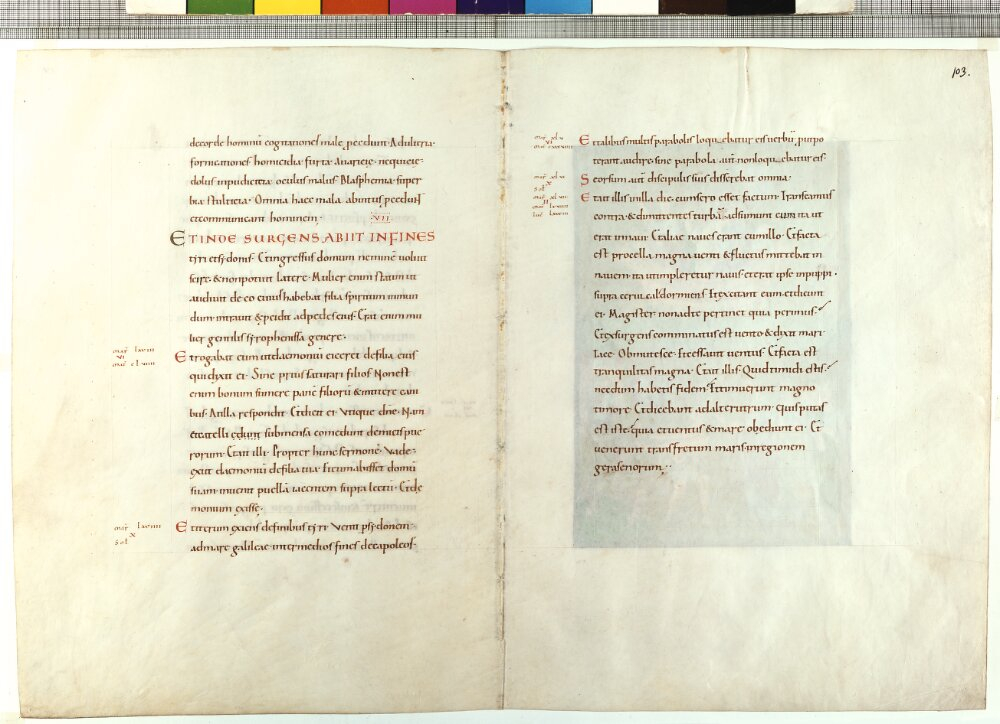 de corde hominū cogitationes male pcedunt · Adulteria ·
fornicationes homicidia · furta · Auaritię · nequitię ·
dolus inpudicitia · oculus malus · Blasphemia · super
bia stultitia · Omnia haec mala abintus pcedun
et communicant hominem ·
·VII·
ET INDE SURGENS ABIIT IN FINES
tyri et sydonis · Et ingressus domum neminē uoluit
scire · & non potuit latere · Mulier enim statim ut
audiuit de eo cuius habebat filia spiritum inmun
dum · intrauit & pcidit ad pedes eius · Erat enim mu
lier gentilis syrophenissa genere ·
mar lxxiii
VI
mat clviii
Et rogabat eum ut daemoniū eiceret de filia eius
qui dixit ei · Sine prius saturari filios · Non est
enim bonum sumere panē filiorū & mittere cani
bus · At illa respondit · Et dicit ei · Utique dn̄e · Nam
et catelli edunt sub mensa comedunt de micis pue
rorum · Et ait illi · Propter hunc sermonē · Vade ·
exiit daemoniū de filia tua · Et cum abisset domū
suam · inuenit puellā iacentem supra lectū · Et de
monium exisse ·
mar lxxiiii
X
sol
Et iterum exiens de finibus tyri · Venit p sydonem ·
ad mare galileae inter medios fines decapoleos ·
103.
VI
Et talibus multis parabolis loquebatur eis uerbū · put po
terant audire · sine parabola aut̄ non loquebatur eis ·
X
sol
Seorsum aut̄ discipulis suis disserebat omnia ·
II
Et ait illis illa die · cum sero esset factum · Transeamus
contra · & dimittentes turbā · adsumunt eum ita ut
erat in naui · Et aliae naues erant cum illo · Et facta
est procella magna uenti & fluctus mittebat in
nauem · ita ut impleretur nauis · et erat ipse in puppi ·
supra ceruical dormiens · Et excitant eum et dicunt
ei · Magister non ad te pertinet quia perimus ·
Et exsurgens comminatus est uento · & dixit mari
Tace · Obmutesce · Et cessauit uentus · Et facta est
tranquillitas magna · Et ait illis · Quid timidi estis
necdum habetis fidem · Et timuerunt magno
timore · Et dicebant ad alterutrum · quis putas
est iste · quia et uentus & mare · obediunt ei · Et
uenerunt trans fretum maris in regionem
gerasenorum ··